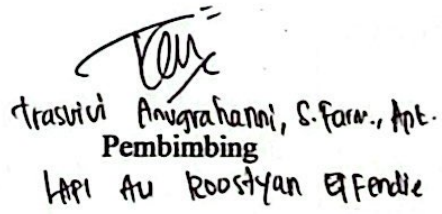 Trasvivi Anugrahanni, S.Farm., Apt.
Pembimbing
LAPI AU ROOSTYAN EFFendie